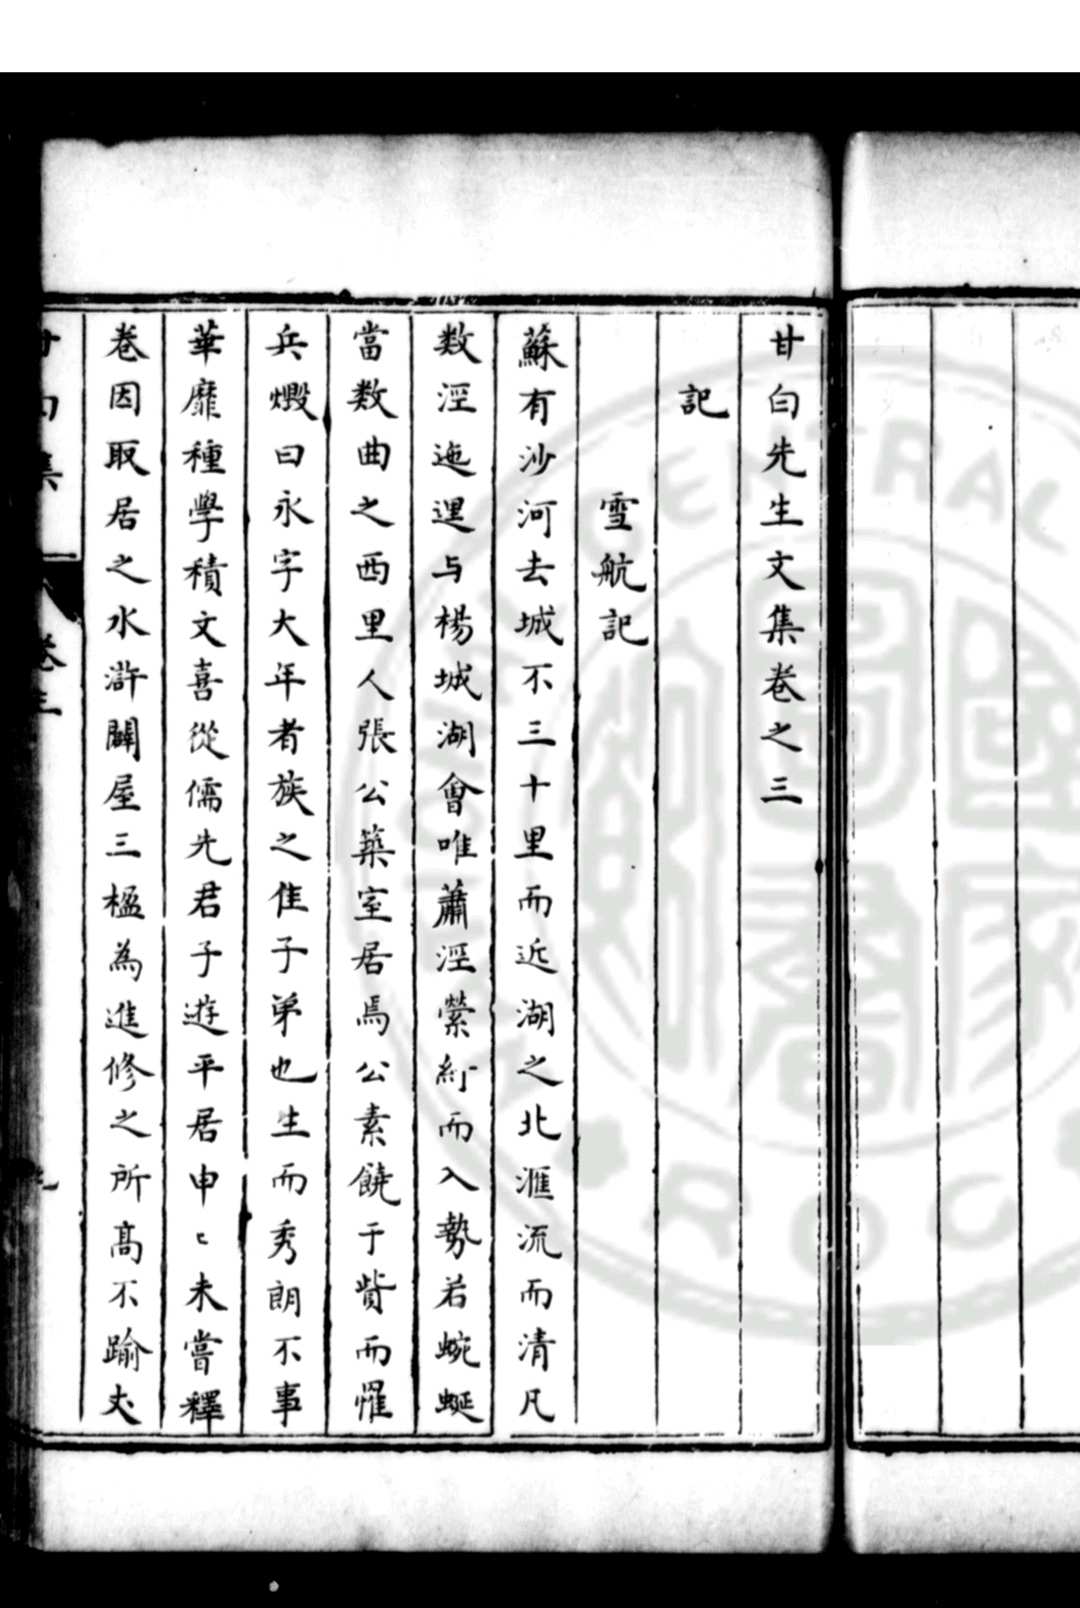 甘白先生文集卷之三
記
雪航記
蘇有沙河去城不三十里而近湖之北滙流而清凡
数涇迤逕与楊城湖會唯蕭涇縈紆而入勢若蜿蜒
當数曲之西里人張公築室居焉公素饒于貲而罹
兵燬曰永字大年者族之隹子弟也生而秀朗不事
華靡種學積文喜從儒先君子遊平居申〻未嘗釋
卷因取居之水滸闢屋三楹為進修之所髙不踰丈
卷三
CENTRAL